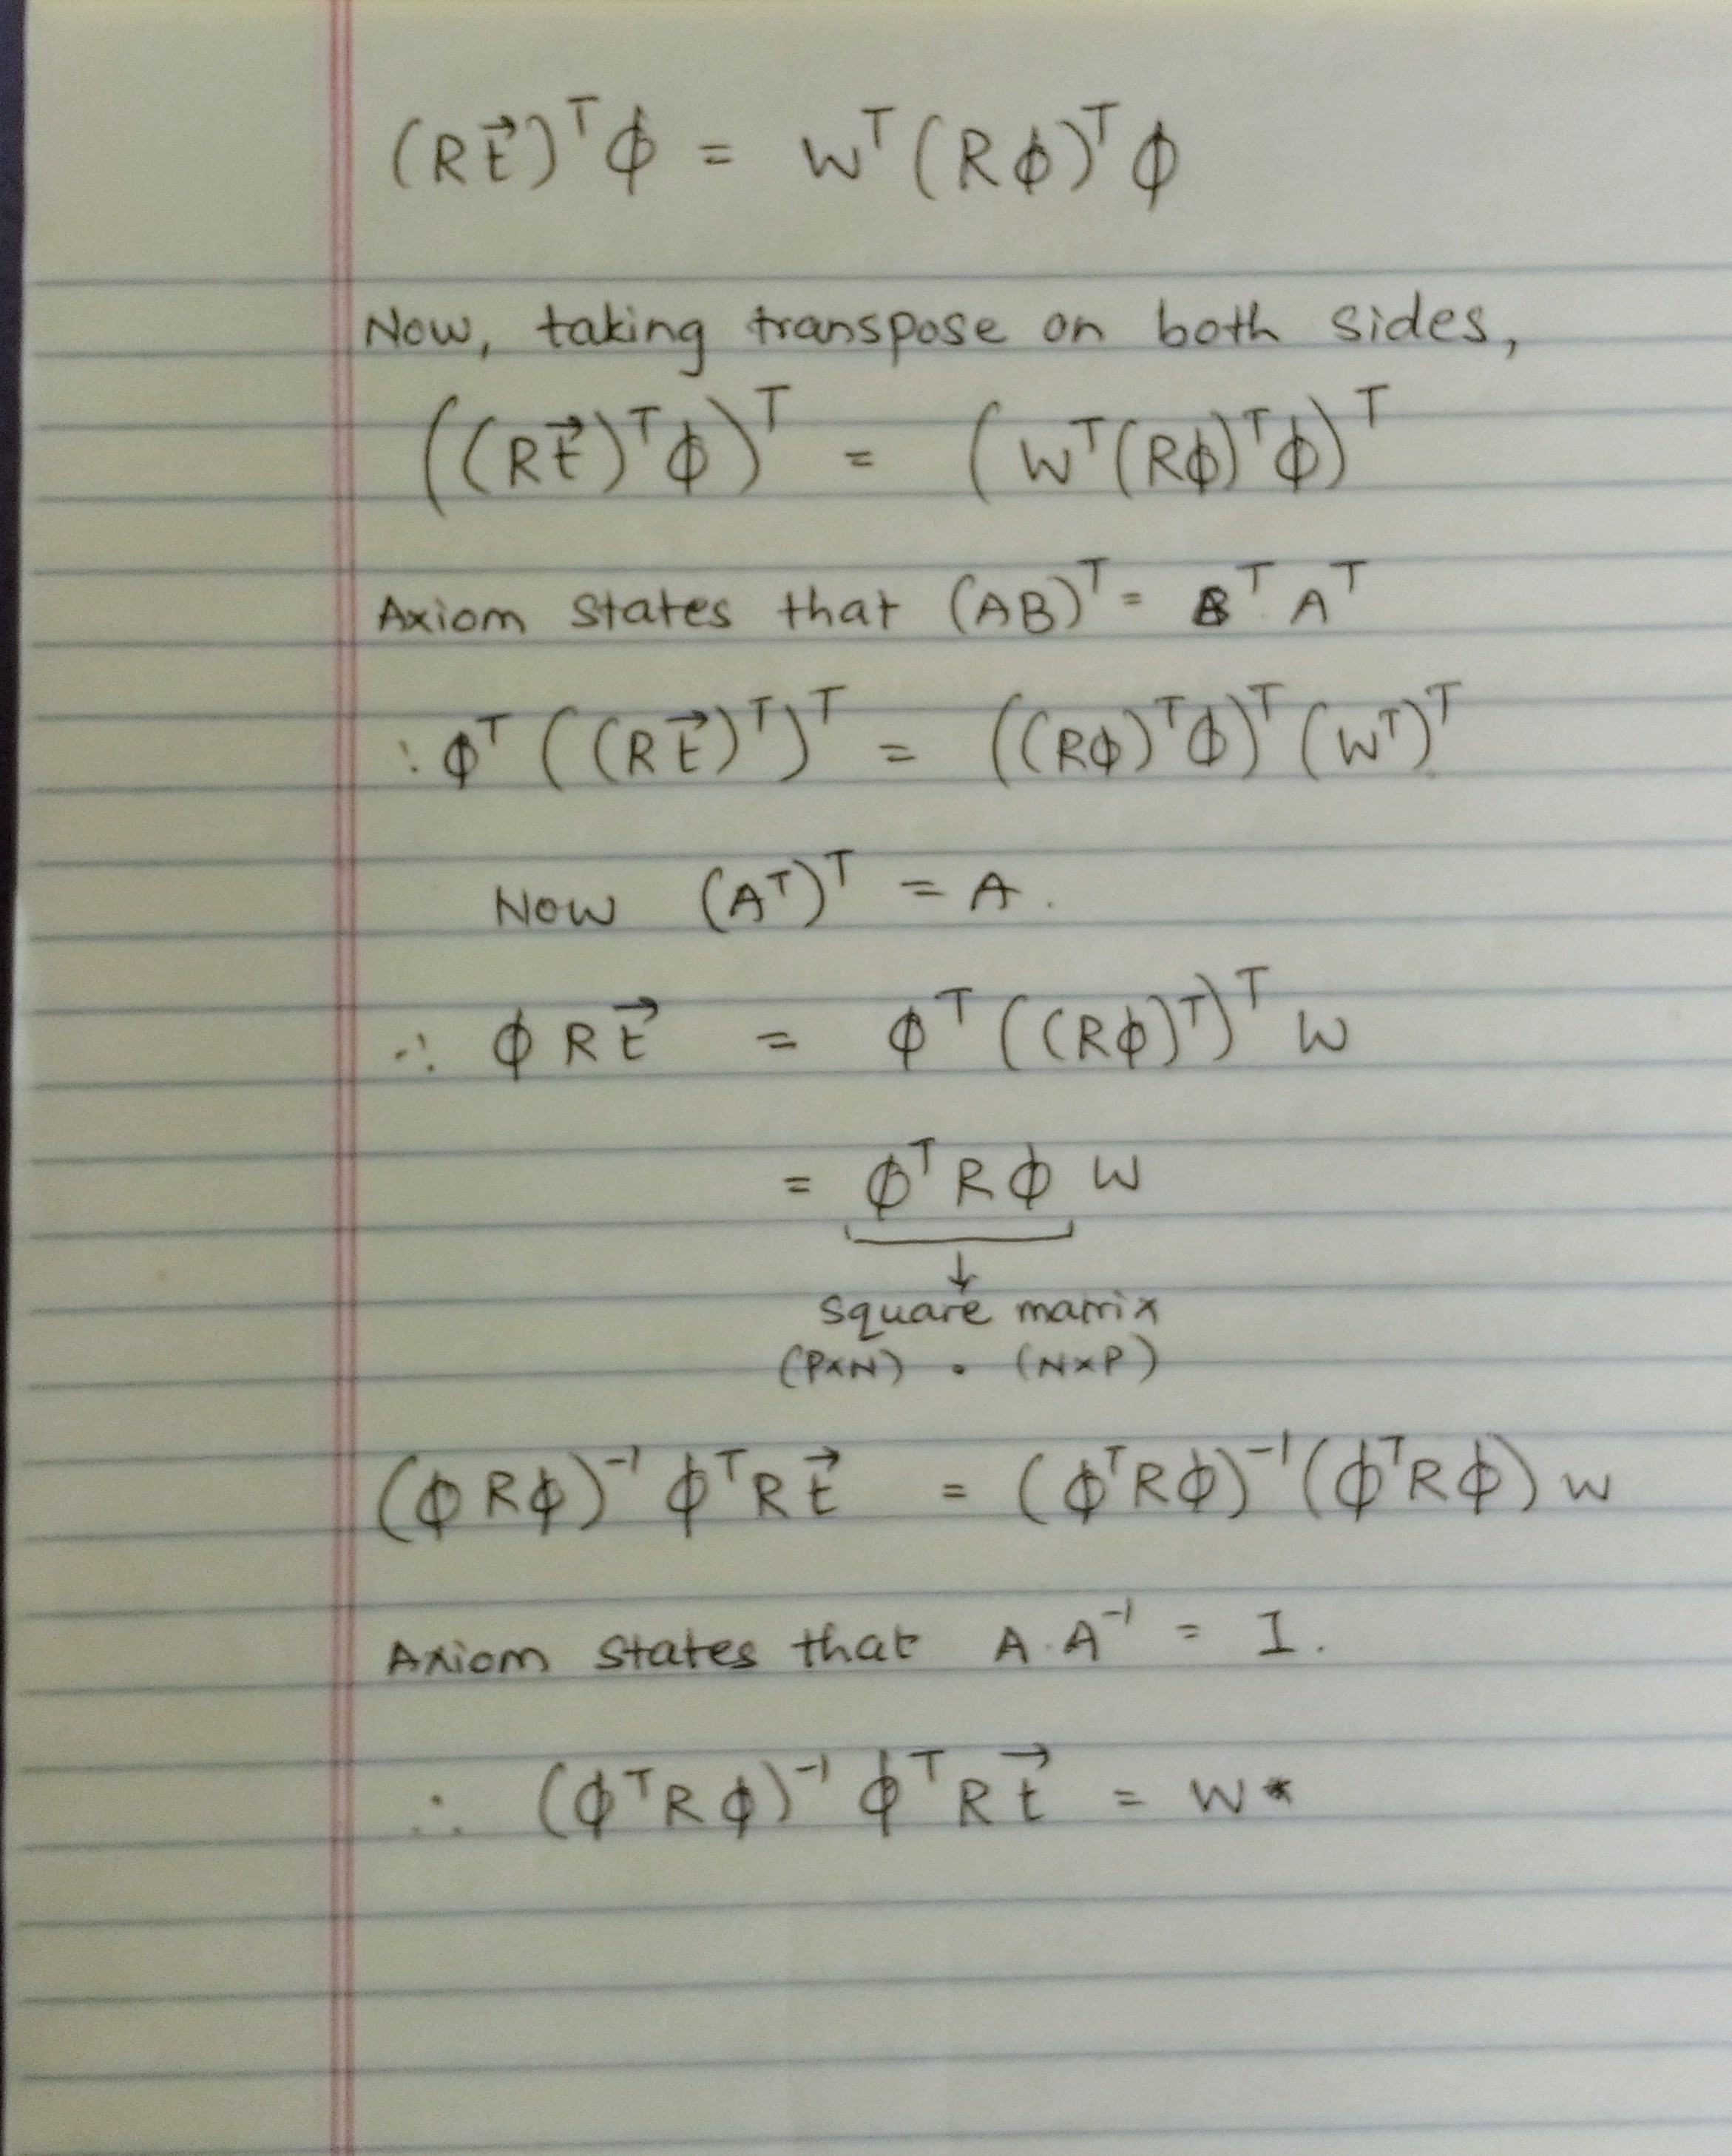 (R t⃗)ᵀ ϕ = wᵀ (R ϕ)ᵀ ϕ
Now, taking transpose on both sides,
((R t⃗)ᵀ ϕ)ᵀ = (wᵀ (R ϕ)ᵀ ϕ)ᵀ
Axiom states that (AB)ᵀ = Bᵀ Aᵀ
∴ ϕᵀ ((R t⃗)ᵀ)ᵀ = ((R ϕ)ᵀ ϕ)ᵀ (wᵀ)ᵀ
Now (Aᵀ)ᵀ = A.
∴ ϕ R t⃗ = ϕᵀ ((R ϕ)ᵀ)ᵀ w
= ϕᵀ R ϕ w
↓
square matrix
(P×N) . (N×P)
(ϕ R ϕ)⁻¹ ϕᵀ R t⃗ = (ϕᵀ R ϕ)⁻¹ (ϕᵀ R ϕ) w
Axiom states that A . A⁻¹ = I.
∴ (ϕᵀ R ϕ)⁻¹ ϕᵀ R t⃗ = w*